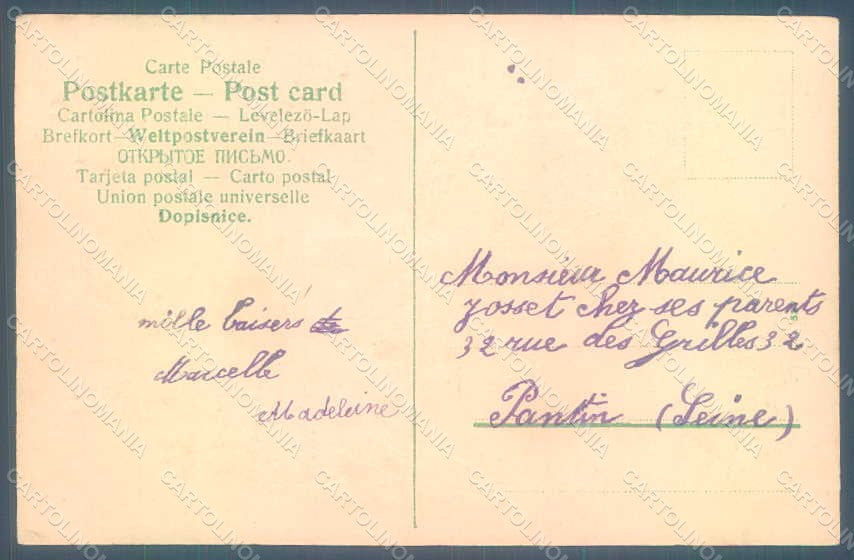 Carte Postale
Postkarte — Post card
Cartolina Postale — Levelezö-Lap
Brefkort—Weltpostverein—Briefkaart
ОТКРЫТОЕ ПИСЬМО.
Tarjeta postal — Carto postal
Union postale universelle
Dopisnice.
mille baisers
Marcelle
Madeleine
Monsieur Maurice
Josset chez ses parents
32 rue des Grilles 32
Pantin (Seine)
CARTOLINOMANIA